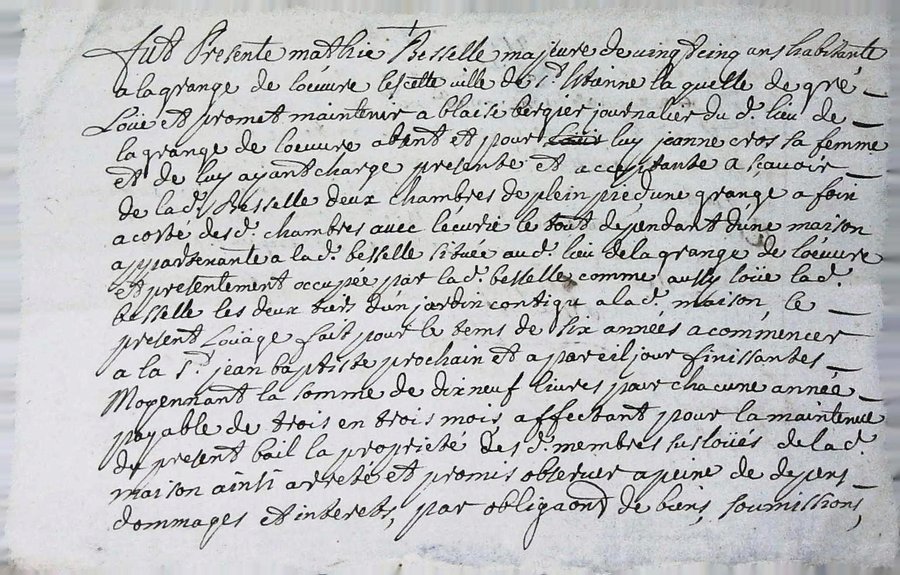 fut Presente mathie Besselle majeure de vingt cinq ans habitante
a la grange de l'oeuvre les cette ville de St. Etienne la quelle de gré
Loüe et promet maintenir a blaise bergier journalier du d. lieu de
la grange de l'oeuvre absent et pour luy jeanne cros sa femme
et de luy ayant charge presente et acceptante a sçavoir
de la d. Besselle deux chambres de plein pied, une grange a foin
a costé des d. chambres avec l'ecurie le tout dependant d'une maison
appartenante a la d. besselle située au d. lieu de la grange de l'oeuvre
et presentement occupée par la d. besselle comme aussy loüe la d.
besselle les deux tiers d'un jardin contigu a la d. maison, le
present Loüage fait pour le tems de six années a commencer
a la St. jean baptiste prochain et a pareil jour finissantes
Moyennant la somme de dix neuf livres pour chacune année
payable de trois en trois mois affectant pour la maintenue
du present bail la proprieté des d. membres sus loüés de la d.
maison ainsi arreté et promis observer a peine de depens
dommages et interets, par obligaon de biens, soumissions,